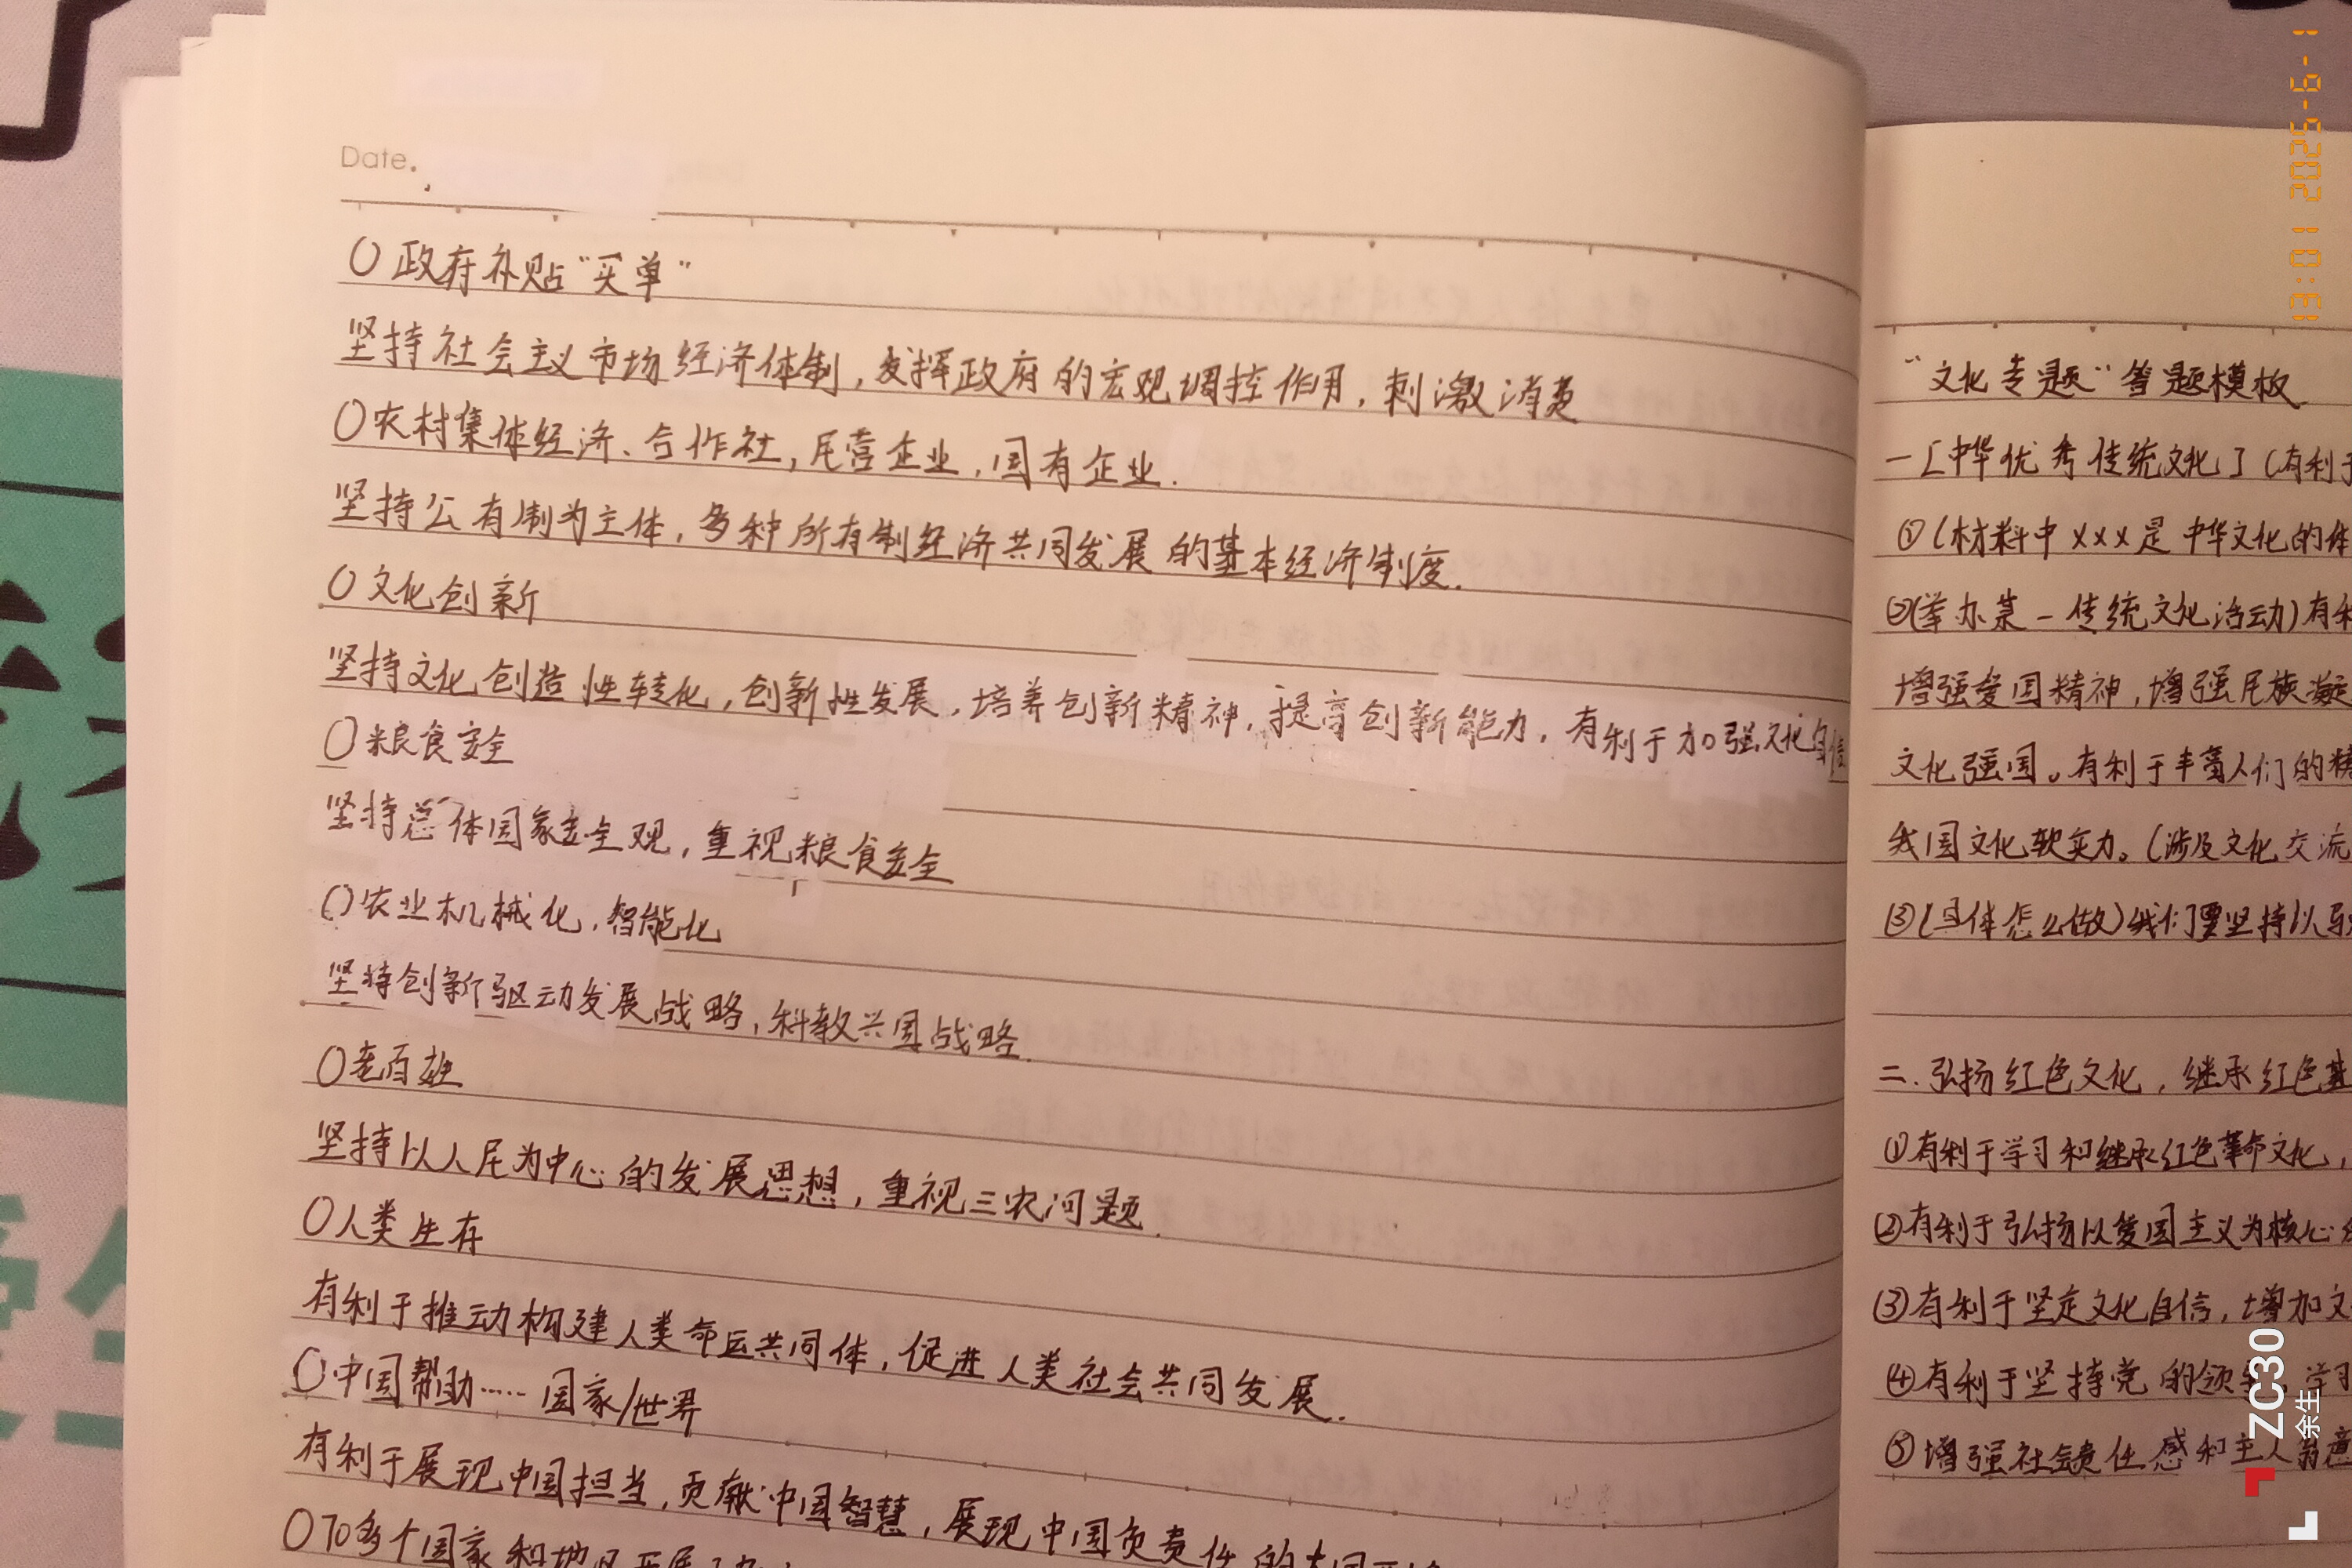 Date.
○政府补贴“买单”
坚持社会主义市场经济体制,发挥政府的宏观调控作用,刺激消费
○农村集体经济、合作社,民营企业,国有企业.
坚持公有制为主体,多种所有制经济共同发展的基本经济制度.
○文化创新
坚持文化创造性转化,创新性发展,培养创新精神,提高创新能力,有利于加强文化自信
○粮食安全
坚持总体国家安全观,重视粮食安全
○农业机械化,智能化
坚持创新驱动发展战略,科教兴国战略.
○老百姓
坚持以人民为中心的发展思想,重视三农问题.
○人类生存
有利于推动构建人类命运共同体,促进人类社会共同发展.
○中国帮助……国家/世界
有利于展现中国担当,贡献中国智慧,展现中国负责任的大国
○70多个国家和地
“文化专题”答题模板
一[中华优秀传统文化](有利于
①(材料中×××是中华文化的体
②(举办某一传统文化活动)有利
增强爱国精神,增强民族凝
文化强国。有利于丰富人们的精
我国文化软实力。(涉及文化交流
③(具体怎么做)我们要坚持以马
二.弘扬红色文化,继承红色基
①有利于学习和继承红色革命文化,
②有利于弘扬以爱国主义为核心
③有利于坚定文化自信,增加文
④有利于坚持党的领导,学习
⑤增强社会责任感和主人翁意
1-9-2025 11:03
ZC30
余生